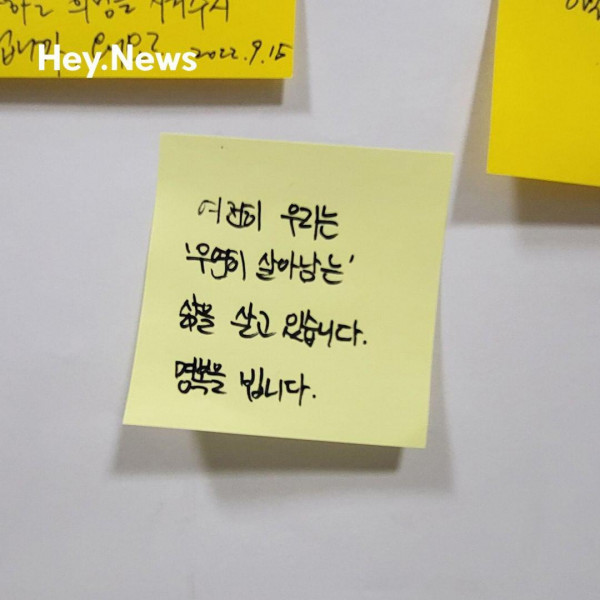 희망을
Hey.News
2022.9.15
여전히 우리는
'우연히 살아남는'
삶을 살고 있습니다.
명복을 빕니다.